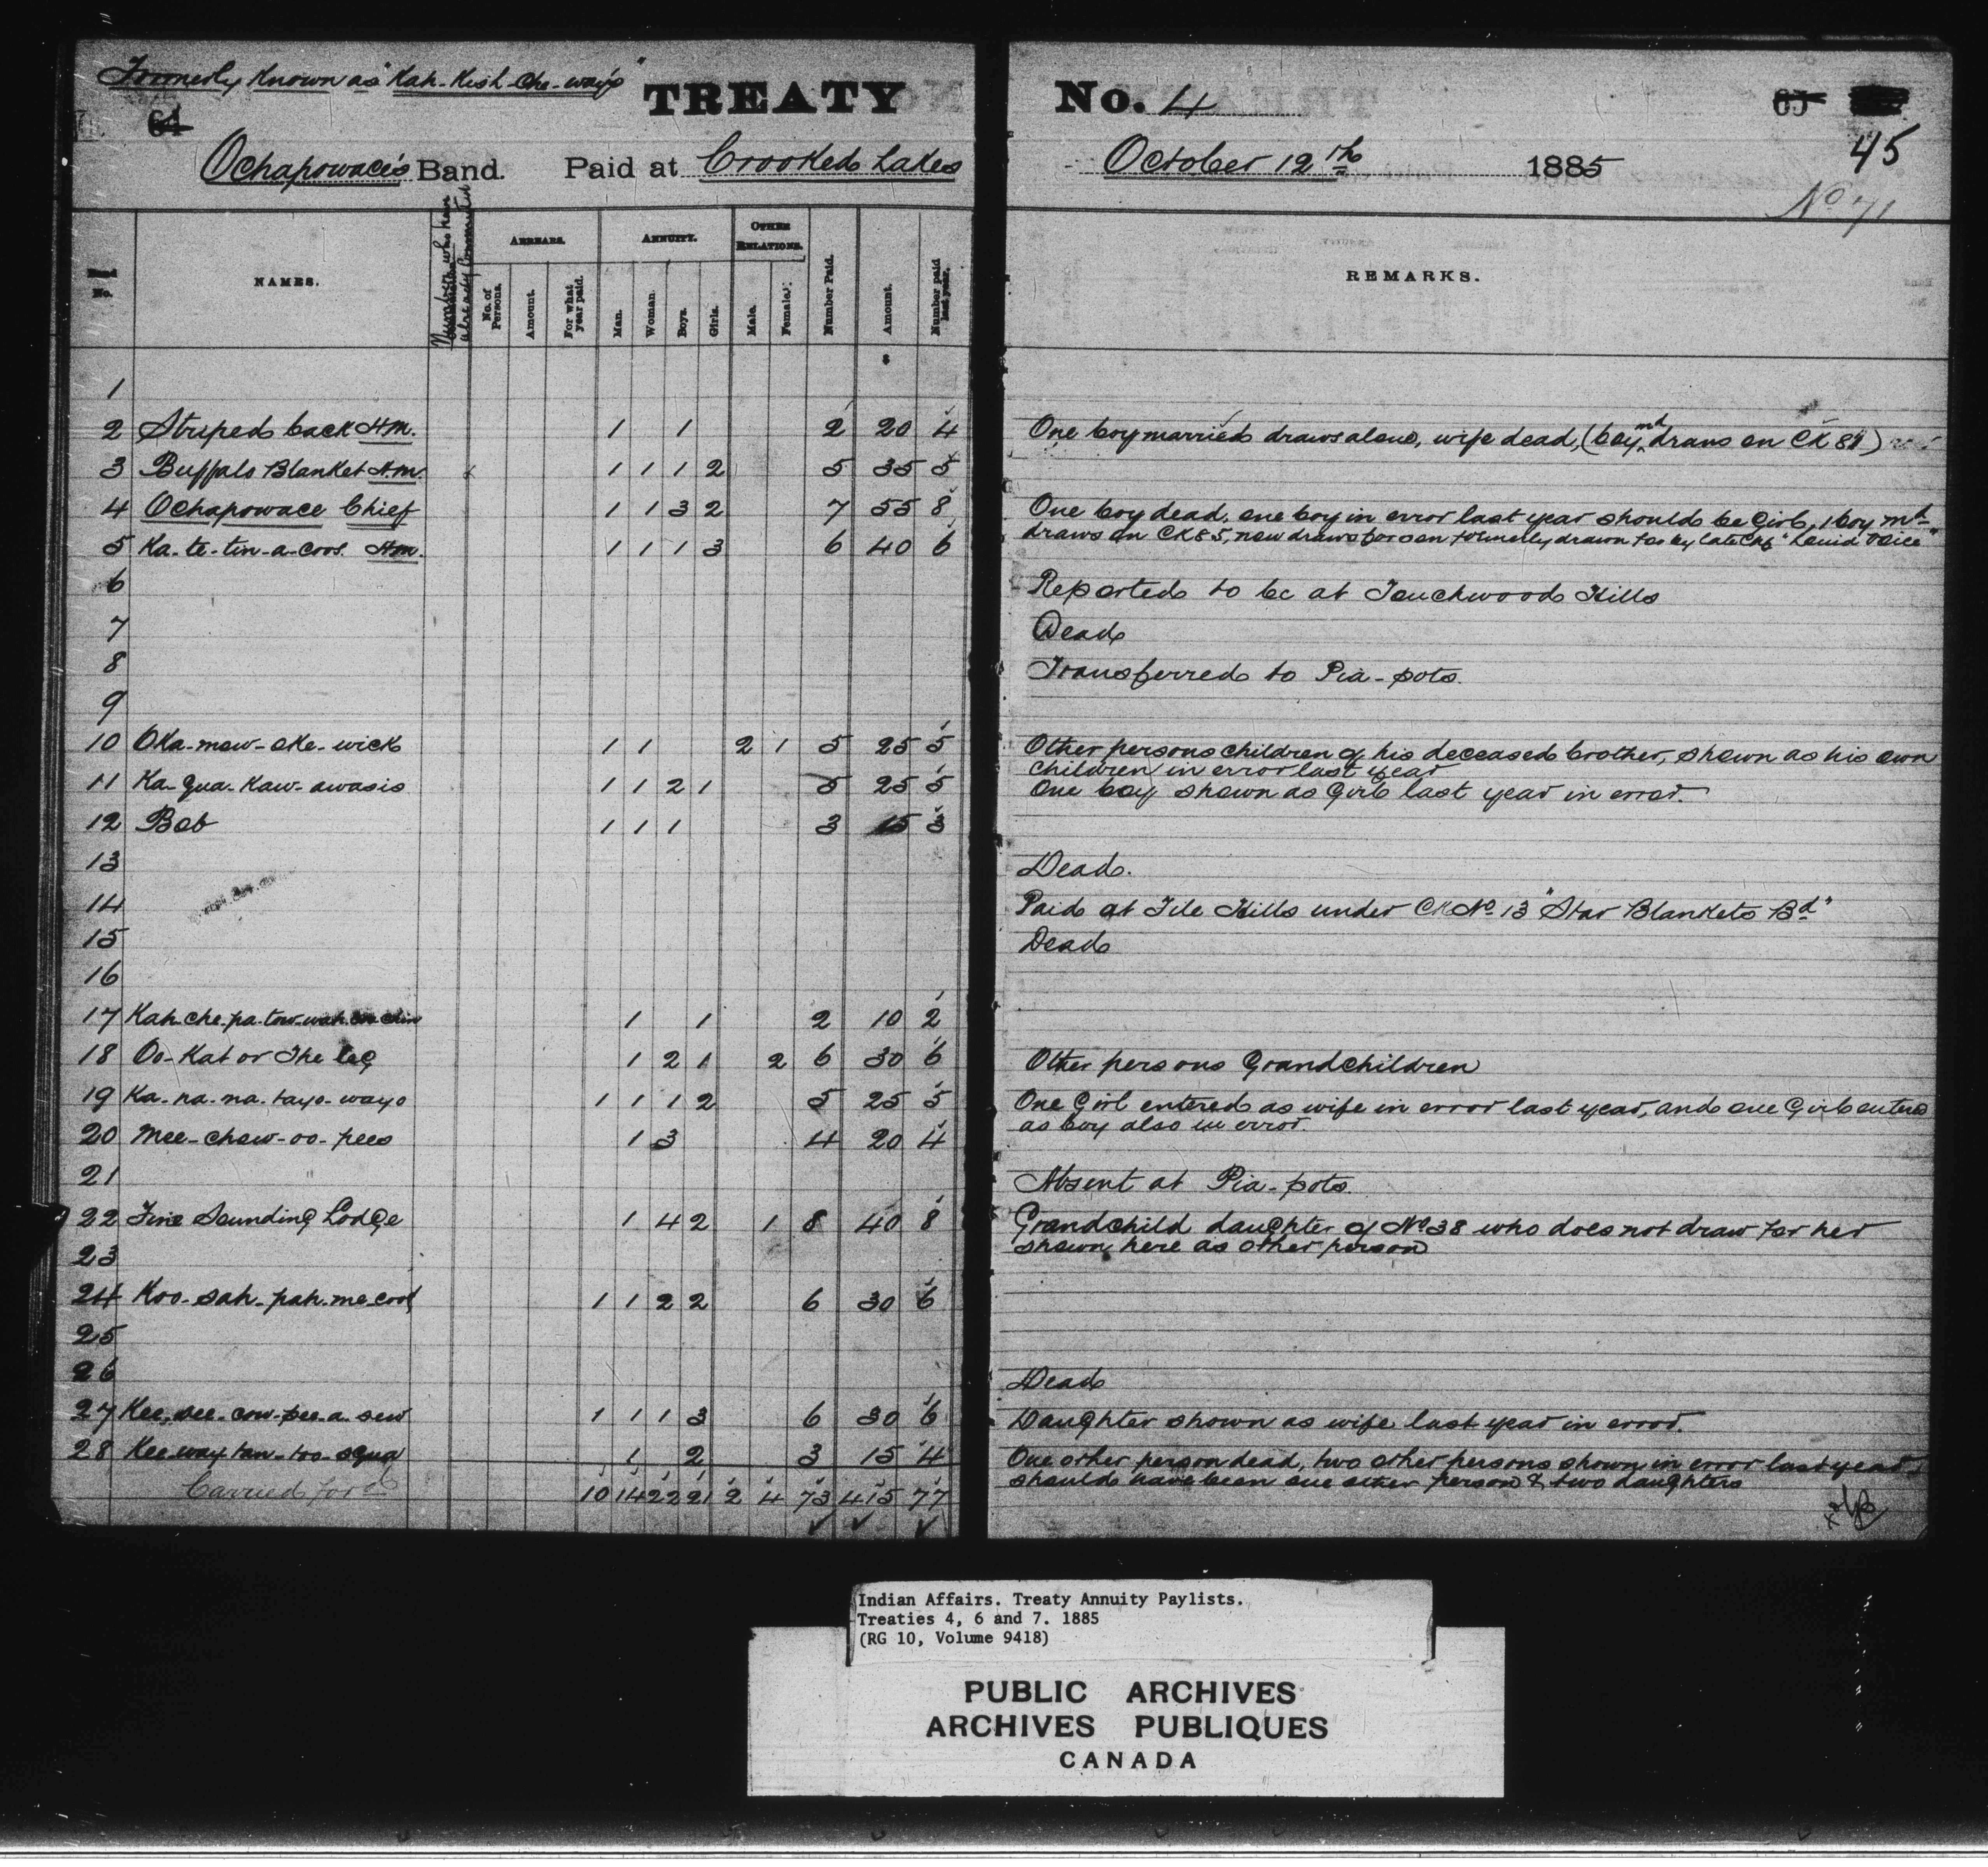 Formerly Known as "Kah-Kish-Che-way's"
TREATY No. 4
64
65
45
Ochapowace's Band. Paid at Crooked Lakes October 12th 1885
No 71
Band No.
NAMES.
Number who have already Commuted
ARREARS.
No. of Persons.
Amount.
For what year paid.
ANNUITY.
Man.
Woman.
Boys.
Girls.
OTHER RELATIONS.
Male.
Female.
Number Paid.
Amount.
Number paid last year.
REMARKS.
1
2 Striped back H.M. 1 1 2 20 4 One boy married draws alone, wife dead, (boy md draws on CK 89)
3 Buffalo Blanket H.M. 1 1 1 2 5 35 5
4 Ochapowace Chief 1 1 3 2 7 55 8 One boy dead, one boy in error last year should be Girl, 1 boy md
5 Ka-te-tin-a-coos. H.M. 1 1 1 3 6 40 6 draws on CK 85, now draws for son formerly drawn for by late Chf "Loud Voice"
6 Reported to be at Touchwood Hills
7 Dead
8 Transferred to Pia-pots.
9
10 Oka-mow-oke-wick 1 1 2 1 5 25 5 Other persons children of his deceased brother, shown as his own
children in error last year
11 Ka-qua-Kaw-awasis 1 1 2 1 5 25 5 One boy shown as Girl last year in error.
12 Bob 1 1 1 3 15 3
13 Dead.
14 Paid at File Hills under CK No 13 "Star Blankets Bd"
15 Dead
16
17 Kah-che-pa-tow-wah 1 1 2 10 2
18 Oo-Kat or The leg 1 2 1 2 6 30 6 Other persons Grandchildren
19 Ka-na-na-tayo-wayo 1 1 1 2 5 25 5 One Girl entered as wife in error last year, and one Girl entered
as boy also in error.
20 Mee-chow-oo-pees 1 3 4 20 4
21 Absent at Pia-pots.
22 Fine Sounding Lodge 1 4 2 1 8 40 8 Grandchild daughter of No 38 who does not draw for her
shown here as other person
23
24 Koo-sah-pah-me-coot 1 1 2 2 6 30 6
25
26 Dead
27 Kee-see-cow-pee-a-sew 1 1 1 3 6 30 6 Daughter shown as wife last year in error.
28 Kee-way-tan-too-squa 1 2 3 15 4 One other person dead, two other persons shown in error last year
should have been one other person & two daughters
Carried ford 10 14 22 21 2 4 73 415 77
Indian Affairs. Treaty Annuity Paylists.
Treaties 4, 6 and 7. 1885
(RG 10, Volume 9418)
PUBLIC ARCHIVES
ARCHIVES PUBLIQUES
CANADA